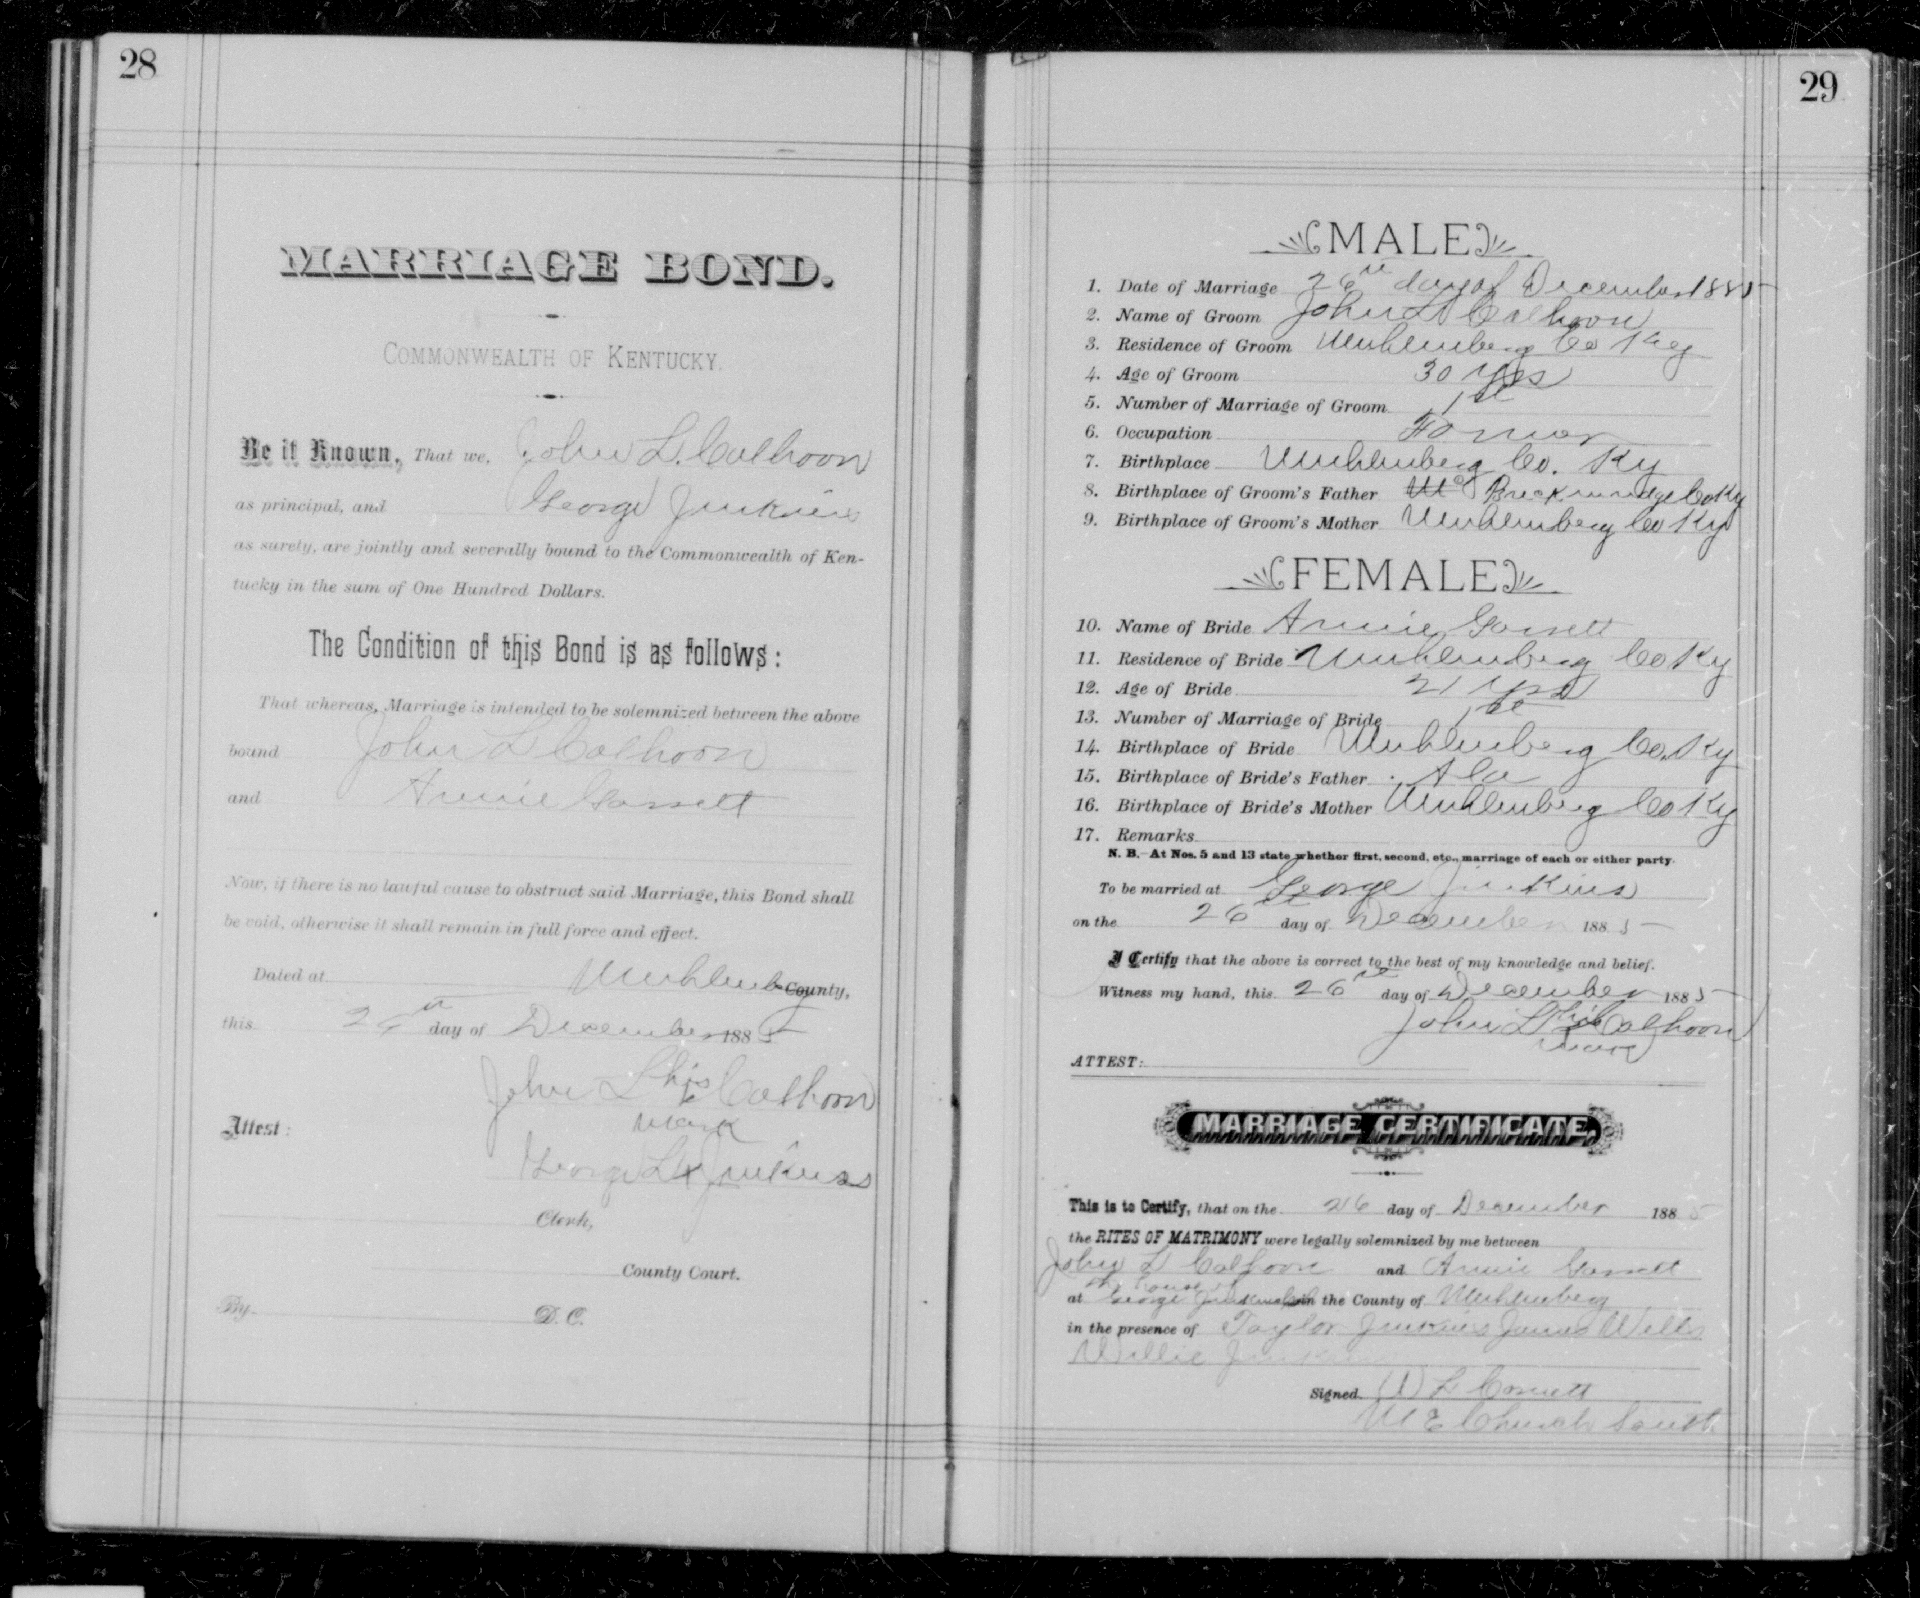 28
MARRIAGE BOND.
COMMONWEALTH OF KENTUCKY.
Be it Known, That we, John L. Calhoon
as principal, and George Jinkins
as surety, are jointly and severally bound to the Commonwealth of Ken-
tucky in the sum of One Hundred Dollars.
The Condition of this Bond is as follows:
That whereas, Marriage is intended to be solemnized between the above
bound John L Calhoon
and Annie Garrett
Now, if there is no lawful cause to obstruct said Marriage, this Bond shall
be void, otherwise it shall remain in full force and effect.
Dated at Muhlenberg County,
this day of December 1885
John L his x Calhoon
mark
Attest:
George L x Jinkins
Clerk,
County Court.
By D. C.
29
MALE
1. Date of Marriage 26th day of December 1885
2. Name of Groom John L Calhoon
3. Residence of Groom Muhlenberg Co Key
4. Age of Groom 30 yrs
5. Number of Marriage of Groom 1st
6. Occupation Farmer
7. Birthplace Muhlenberg Co. Ky
8. Birthplace of Groom's Father Breckinridge Co Ky
9. Birthplace of Groom's Mother Muhlenberg Co Ky
FEMALE
10. Name of Bride Annie Garrett
11. Residence of Bride Muhlenberg Co Ky
12. Age of Bride 21 yrs
13. Number of Marriage of Bride 1st
14. Birthplace of Bride Muhlenberg Co. Ky
15. Birthplace of Bride's Father Ala
16. Birthplace of Bride's Mother Muhlenberg Co Ky
17. Remarks
N. B.—At Nos. 5 and 13 state whether first, second, etc., marriage of each or either party.
To be married at George Jinkins
on the 26th day of December 1885
I Certify that the above is correct to the best of my knowledge and belief.
Witness my hand, this 26th day of December 1885
John L his x Calhoon
mark
ATTEST:
MARRIAGE CERTIFICATE.
This is to Certify, that on the 26 day of December 1885
the RITES OF MATRIMONY were legally solemnized by me between
John L Calhoon and Annie Garrett
the house of
at George Jinkins in the County of Muhlenberg
in the presence of Taylor Jinkins James Wells
Willie Jinkins
Signed. L
M E Church South